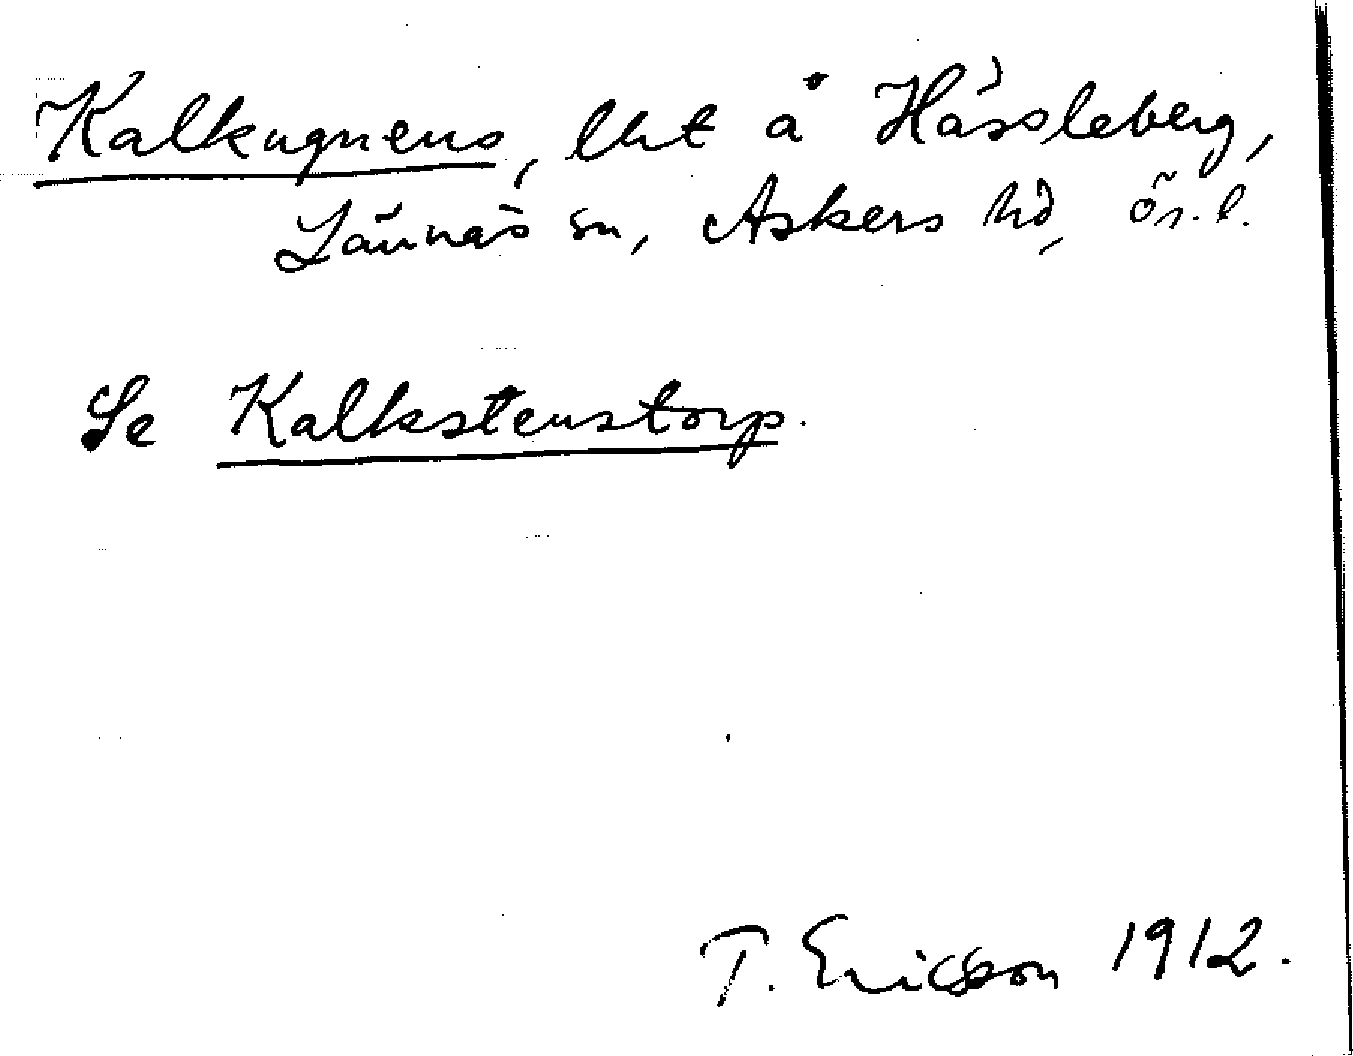 Kalkugnens, lht å Hässleberg,
Lännäs sn, Askers hd, Ör. l.
Se Kalkstenstorp.
T. Ericsson 1912.